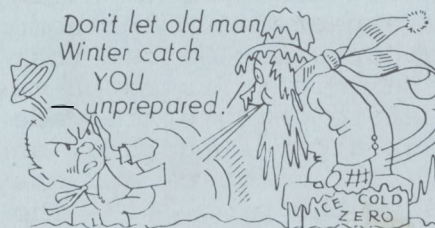 Don't let old man
Winter catch
YOU
unprepared.
ICE COLD
ZERO